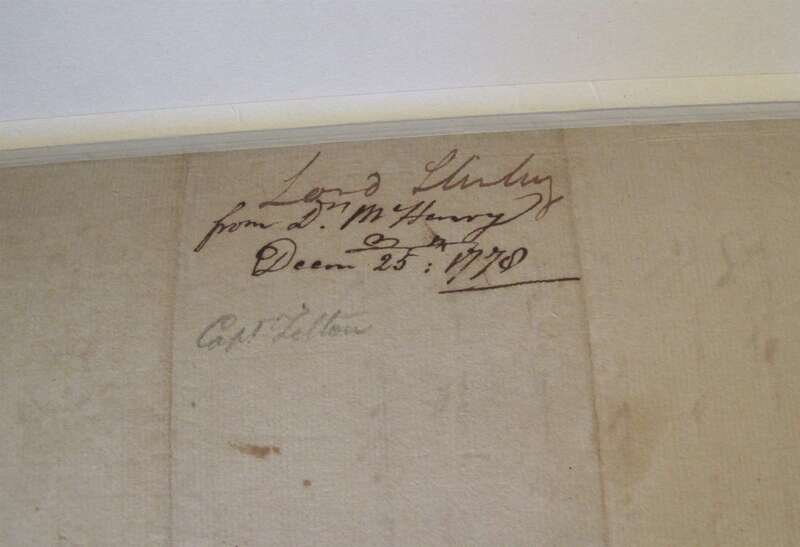 Lord Stirling
from Dr. McHenry
Decem 25: 1778
Capt Lilton